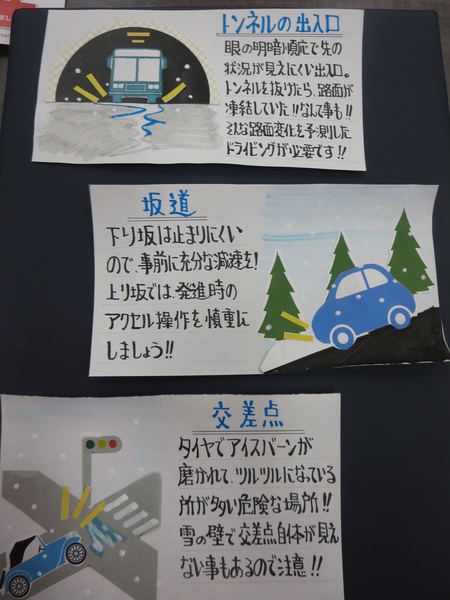 トンネルの出入口
眼の明暗順応で先の
状況が見えにくい出入口。
トンネルを抜けたら、路面が
凍結していた!!なんて事も!!
そんな路面変化を予測した
ドライビングが必要です!!
坂道
下り坂は止まりにくい
ので、事前に充分な減速を!
上り坂では、発進時の
アクセル操作を慎重に
しましょう!!
交差点
タイヤでアイスバーンが
磨かれて、ツルツルになっている
所が多い危険な場所!!
雪の壁で交差点自体が見え
ない事もあるので注意!!